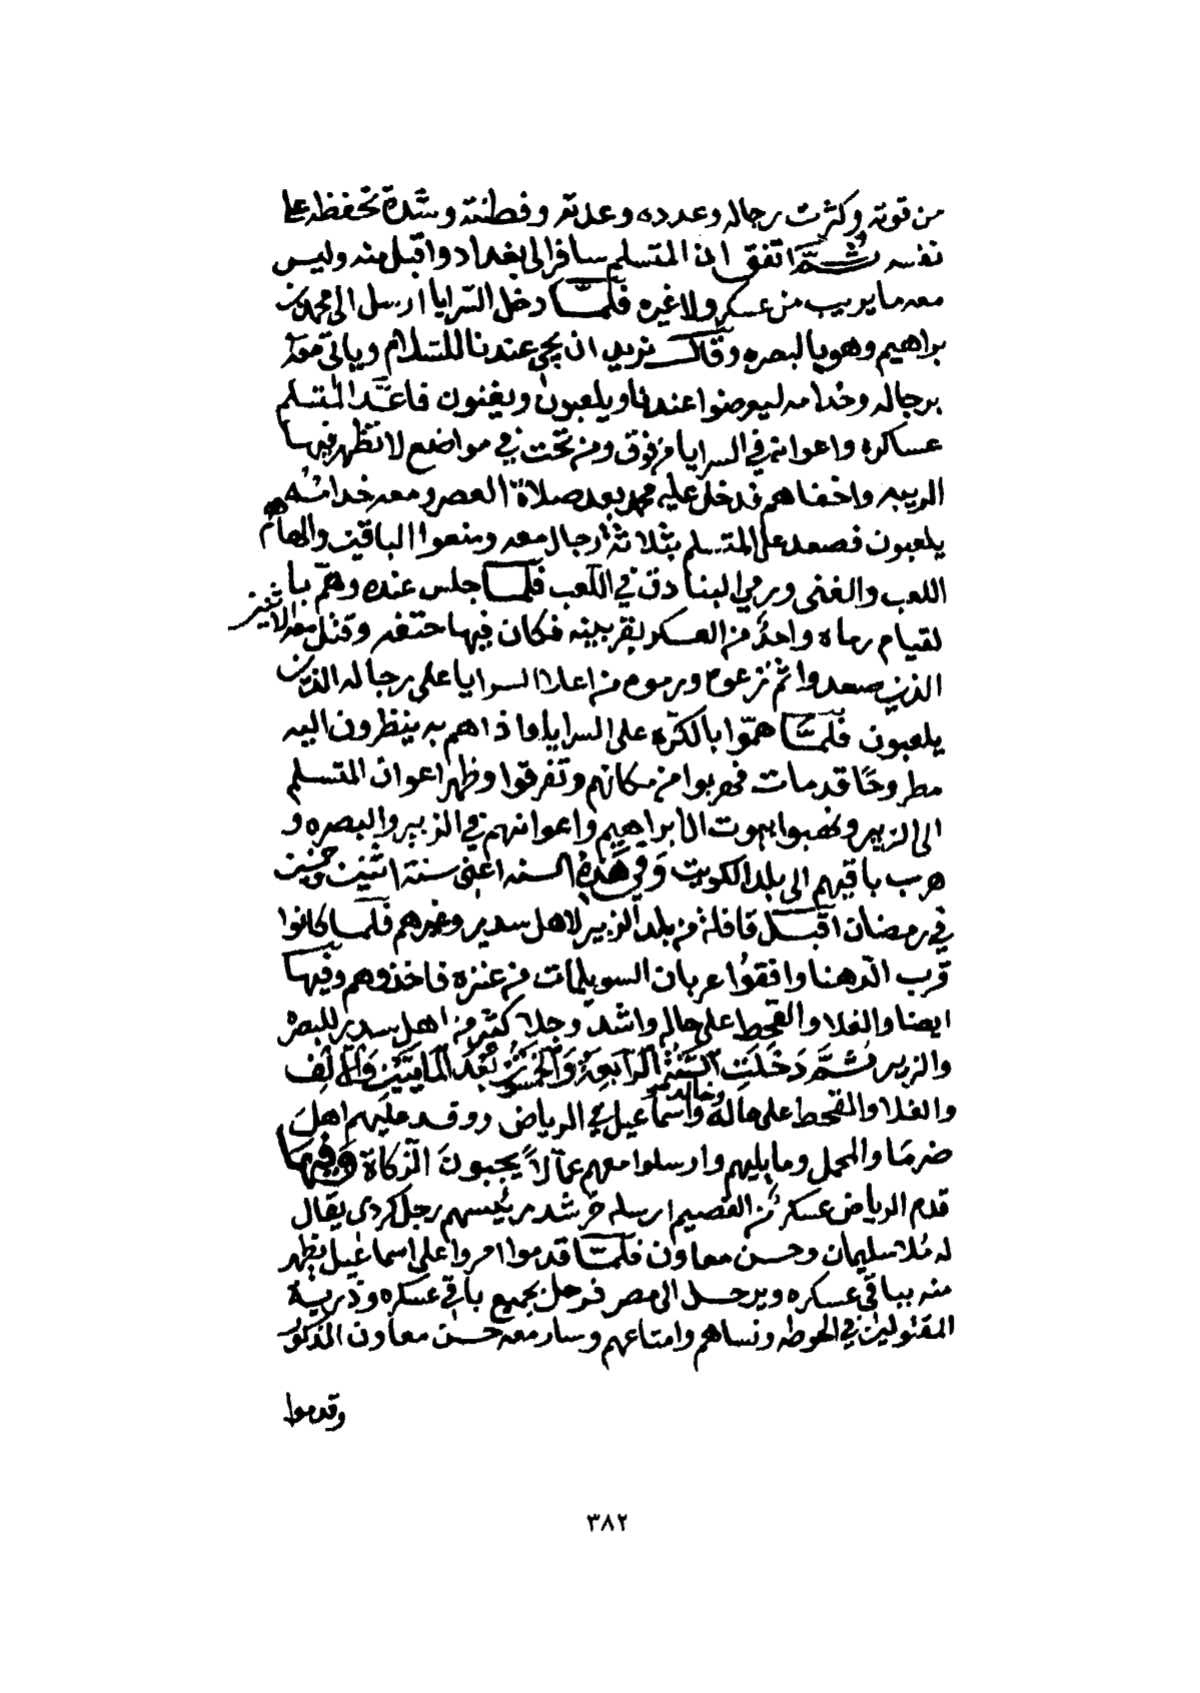 من قوته وكثرت رجاله وعدده وعدته وفطنته وشدة تحفظه على
نفسه ثم اتفق ان المتسلم سافر الى بغداد واقبل منه وليس
معه ما يريب من عسكر ولا غيره فلما دخل السرايا ارسل الى محمد بن
براهيم وهو بالبصره وقال نريد ان يجي عندنا للسلام وياتي معه
برجاله وخدامه ليعرضوا عندنا ويلعبون ويغنون فاعد المتسلم
عساكره واعوانه في السرايا من فوق ومن تحت في مواضع لا تظهر فيها
الريبه واخفاهم فدخل عليه محمد بعد صلاة العصر ومعه خدامه
يلعبون فصعد على المتسلم بثلاثة رجال معه ومنعوا الباقين والهاهم
اللعب والغنى ورمي البنادق في اللعب فلما جلس عنده وهم با
لقيام رماه واحد من العسكر بقرينه فكان فيها حتفه وقتل معه الاثنين
الذين صعدوا ثم نزعوه ورموه من اعلا السرايا على رجاله الذين
يلعبون فلما هموا بالكره على السرايا واذا هم به ينظرون اليه
مطروحًا قد مات فهربوا من مكانهم وتفرقوا وظهر اعوان المتسلم
الى الزبير ونهبوا بيوت ال ابراهيم واعوانهم في الزبير والبصره و
هرب باقيهم الى بلد الكويت وفي هذه السنه اعني سنة اثنين وخمسين
في رمضان اقبل قافلة من بلد الزبير لاهل سدير وغيرهم فلما كانوا
قرب الدهنا وافقوا عربان السويلمات من عنزه فاخذوهم وفيها
ايضا والغلا والقحط على حاله واشد وجلا كثير من اهل سدير للبصره
والزبير ثم دخلت السنة الرابعة والخمسون بعد المايتين والالف
والغلا والقحط على حاله وخالد واسماعيل في الرياض ووفد عليهم اهل
ضرما والمحمل وما يليهم وارسلوا معهم عمالاً يجبون الزكاة وفيها
قدم الرياض عسكر من القصيم ارسله خرشد رئيسهم رجل كردي يقال
له ملا سليمان وحسن معاون فلما قدموا امروا على اسماعيل يظهر
منه بباقي عسكره ويرحل الى مصر فرحل بجميع باقي عسكره وذرية
المقتولين في الحوطه ونساهم وامتاعهم وسار معه حسن معاون المذكور
وقدموا
٣٨٢